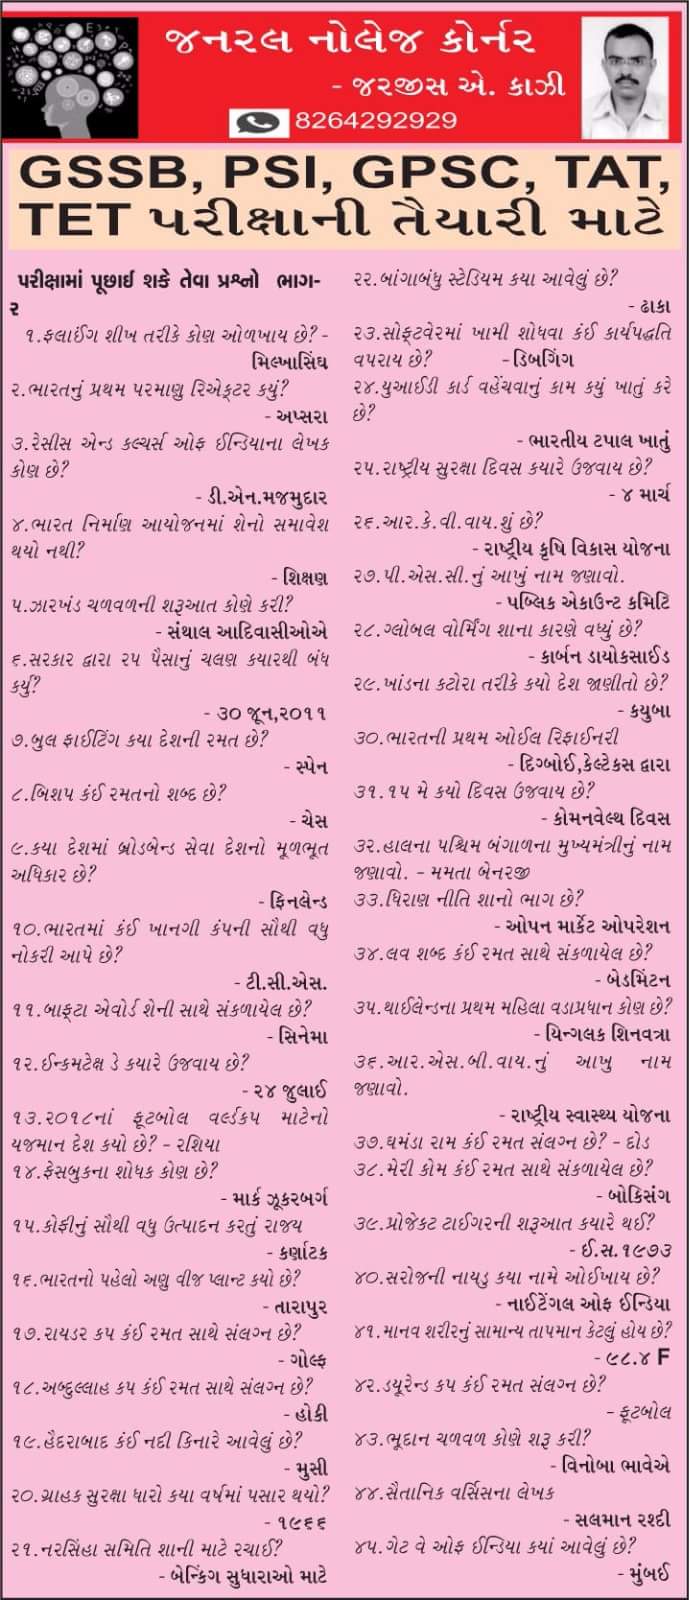 જનરલ નોલેજ કોર્નર
- જરજીસ એ. કાઝી
8264292929
GSSB, PSI, GPSC, TAT,
TET પરીક્ષાની તૈયારી માટે
પરીક્ષામાં પૂછાઈ શકે તેવા પ્રશ્નો ભાગ-
૨
૧.ફલાઈંગ શીખ તરીકે કોણ ઓળખાય છે? -
મિલ્ખાસિંઘ
૨.ભારતનું પ્રથમ પરમાણુ રિએક્ટર કયું?
- અપ્સરા
૩.રેસીસ એન્ડ કલ્ચર્સ ઓફ ઈન્ડિયાના લેખક
કોણ છે?
- ડી.એન.મજમુદાર
૪.ભારત નિર્માણ આયોજનમાં શેનો સમાવેશ
થયો નથી?
- શિક્ષણ
૫.ઝારખંડ ચળવળની શરૂઆત કોણે કરી?
- સંથાલ આદિવાસીઓએ
૬.સરકાર દ્વારા ૨૫ પૈસાનું ચલણ કયારથી બંધ
કર્યું?
- ૩૦ જૂન,૨૦૧૧
૭.બુલ ફાઈટિંગ કયા દેશની રમત છે?
- સ્પેન
૮.બિશપ કંઈ રમતનો શબ્દ છે?
- ચેસ
૯.કયા દેશમાં બ્રોડબેન્ડ સેવા દેશનો મૂળભૂત
અધિકાર છે?
- ફિનલેન્ડ
૧૦.ભારતમાં કંઈ ખાનગી કંપની સૌથી વધુ
નોકરી આપે છે?
- ટી.સી.એસ.
૧૧.બાફ્ટા એવોર્ડ શેની સાથે સંકળાયેલ છે?
- સિનેમા
૧૨.ઈન્કમટેક્ષ ડે કયારે ઉજવાય છે?
- ૨૪ જુલાઈ
૧૩.૨૦૧૮નાં ફૂટબોલ વર્લ્ડકપ માટેનો
યજમાન દેશ કયો છે? - રશિયા
૧૪.ફેસબુકના શોધક કોણ છે?
- માર્ક ઝૂકરબર્ગ
૧૫.કોફીનું સૌથી વધુ ઉત્પાદન કરતું રાજય
- કર્ણાટક
૧૬.ભારતનો પહેલો અણુ વીજ પ્લાન્ટ કયો છે?
- તારાપુર
૧૭.રાયડર કપ કંઈ રમત સાથે સંલગ્ન છે?
- ગોલ્ફ
૧૮.અબ્દુલ્લાહ કપ કંઈ રમત સાથે સંલગ્ન છે?
- હોકી
૧૯.હૈદરાબાદ કંઈ નદી કિનારે આવેલું છે?
- મુસી
૨૦.ગ્રાહક સુરક્ષા ધારો કયા વર્ષમાં પસાર થયો?
- ૧૯૬૬
૨૧.નરસિંહા સમિતિ શાની માટે રચાઈ?
- બેન્કિંગ સુધારાઓ માટે
૨૨.બાંગાબંધુ સ્ટેડિયમ કયા આવેલું છે?
- ઢાકા
૨૩.સોફ્ટવેરમાં ખામી શોધવા કંઈ કાર્યપદ્ધતિ
વપરાય છે? - ડિબગિંગ
૨૪.યુઆઈડી કાર્ડ વહેંચવાનું કામ કયું ખાતું કરે
છે?
- ભારતીય ટપાલ ખાતું
૨૫.રાષ્ટ્રીય સુરક્ષા દિવસ કયારે ઉજવાય છે?
- ૪ માર્ચ
૨૬.આર.કે.વી.વાય.શું છે?
- રાષ્ટ્રીય કૃષિ વિકાસ યોજના
૨૭.પી.એસ.સી.નું આખું નામ જણાવો.
- પબ્લિક એકાઉન્ટ કમિટિ
૨૮.ગ્લોબલ વોર્મિંગ શાના કારણે વધ્યું છે?
- કાર્બન ડાયોકસાઈડ
૨૯.ખાંડના કટોરા તરીકે કયો દેશ જાણીતો છે?
- કયુબા
૩૦.ભારતની પ્રથમ ઓઈલ રિફાઈનરી
- દિગ્બોઈ,કેલ્ટેકસ દ્વારા
૩૧.૧૫ મે કયો દિવસ ઉજવાય છે?
- કોમનવેલ્થ દિવસ
૩૨.હાલના પશ્ચિમ બંગાળના મુખ્યમંત્રીનું નામ
જણાવો. - મમતા બેનરજી
૩૩.ધિરાણ નીતિ શાનો ભાગ છે?
- ઓપન માર્કેટ ઓપરેશન
૩૪.લવ શબ્દ કંઈ રમત સાથે સંકળાયેલ છે?
- બેડમિંટન
૩૫.થાઈલેન્ડના પ્રથમ મહિલા વડાપ્રધાન કોણ છે?
- યિન્ગલક શિનવત્રા
૩૬.આર.એસ.બી.વાય.નું આખુ નામ
જણાવો.
- રાષ્ટ્રીય સ્વાસ્થ્ય યોજના
૩૭.ઘમંડા રામ કંઈ રમત સંલગ્ન છે? - દોડ
૩૮.મેરી કોમ કંઈ રમત સાથે સંકળાયેલ છે?
- બોકિસંગ
૩૯.પ્રોજેકટ ટાઈગરની શરૂઆત કયારે થઈ?
- ઈ.સ.૧૯૭૩
૪૦.સરોજની નાયડુ કયા નામે ઓઈખાય છે?
- નાઈટેંગલ ઓફ ઈન્ડિયા
૪૧.માનવ શરીરનું સામાન્ય તાપમાન કેટલું હોય છે?
- ૯૮.૪ F
૪૨.ડયૂરેન્ડ કપ કંઈ રમત સંલગ્ન છે?
- ફૂટબોલ
૪૩.ભૂદાન ચળવળ કોણે શરૂ કરી?
- વિનોબા ભાવેએ
૪૪.સૈતાનિક વર્સિસના લેખક
- સલમાન રશ્દી
૪૫.ગેટ વે ઓફ ઈન્ડિયા કયાં આવેલું છે?
- મુંબઈ